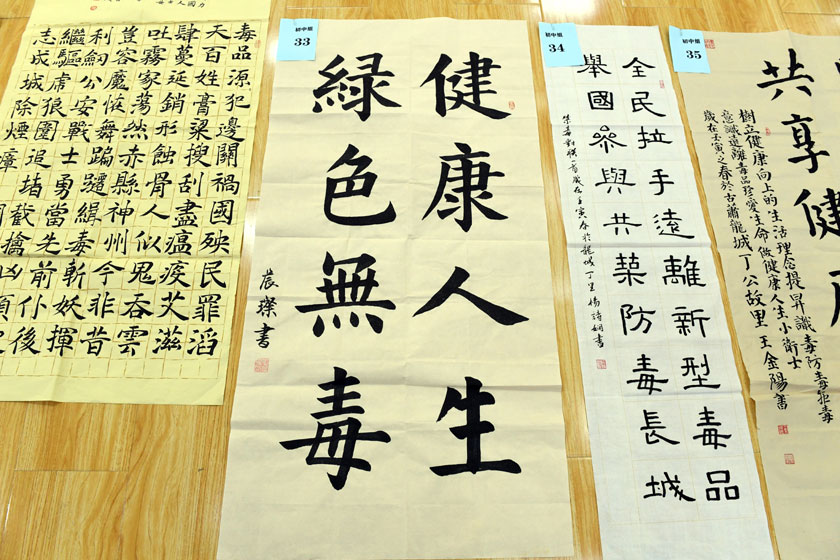 毒品源犯邊關禍國殃民罪滔
天百姓膏粱搜刮盡瘟疫艾滋
肆蔓延銷形蝕骨人似鬼吞雲
吐霧家蕩然赤縣神州今非昔
豈容魔怪舞蹁躚緝毒斬妖揮
利劍公安戰士勇當先前仆後
繼驅虎狼圍追堵截擒凶頑
志成城除煙瘴
初中組
33
健康人生
綠色無毒
晨璨書
初中組
34
全民拉手遠離新型毒品
舉國參與共築防毒長城
禁毒對聯一首歲在壬寅春於龍城丁里楊詩書
初中組
35
健康
共享
樹立健康向上的生活理念提昇識毒防毒拒毒
意識遠離毒品珍愛生命做健康人生小衛士
歲在壬寅之春於古蕭龍城丁公故里王金陽書